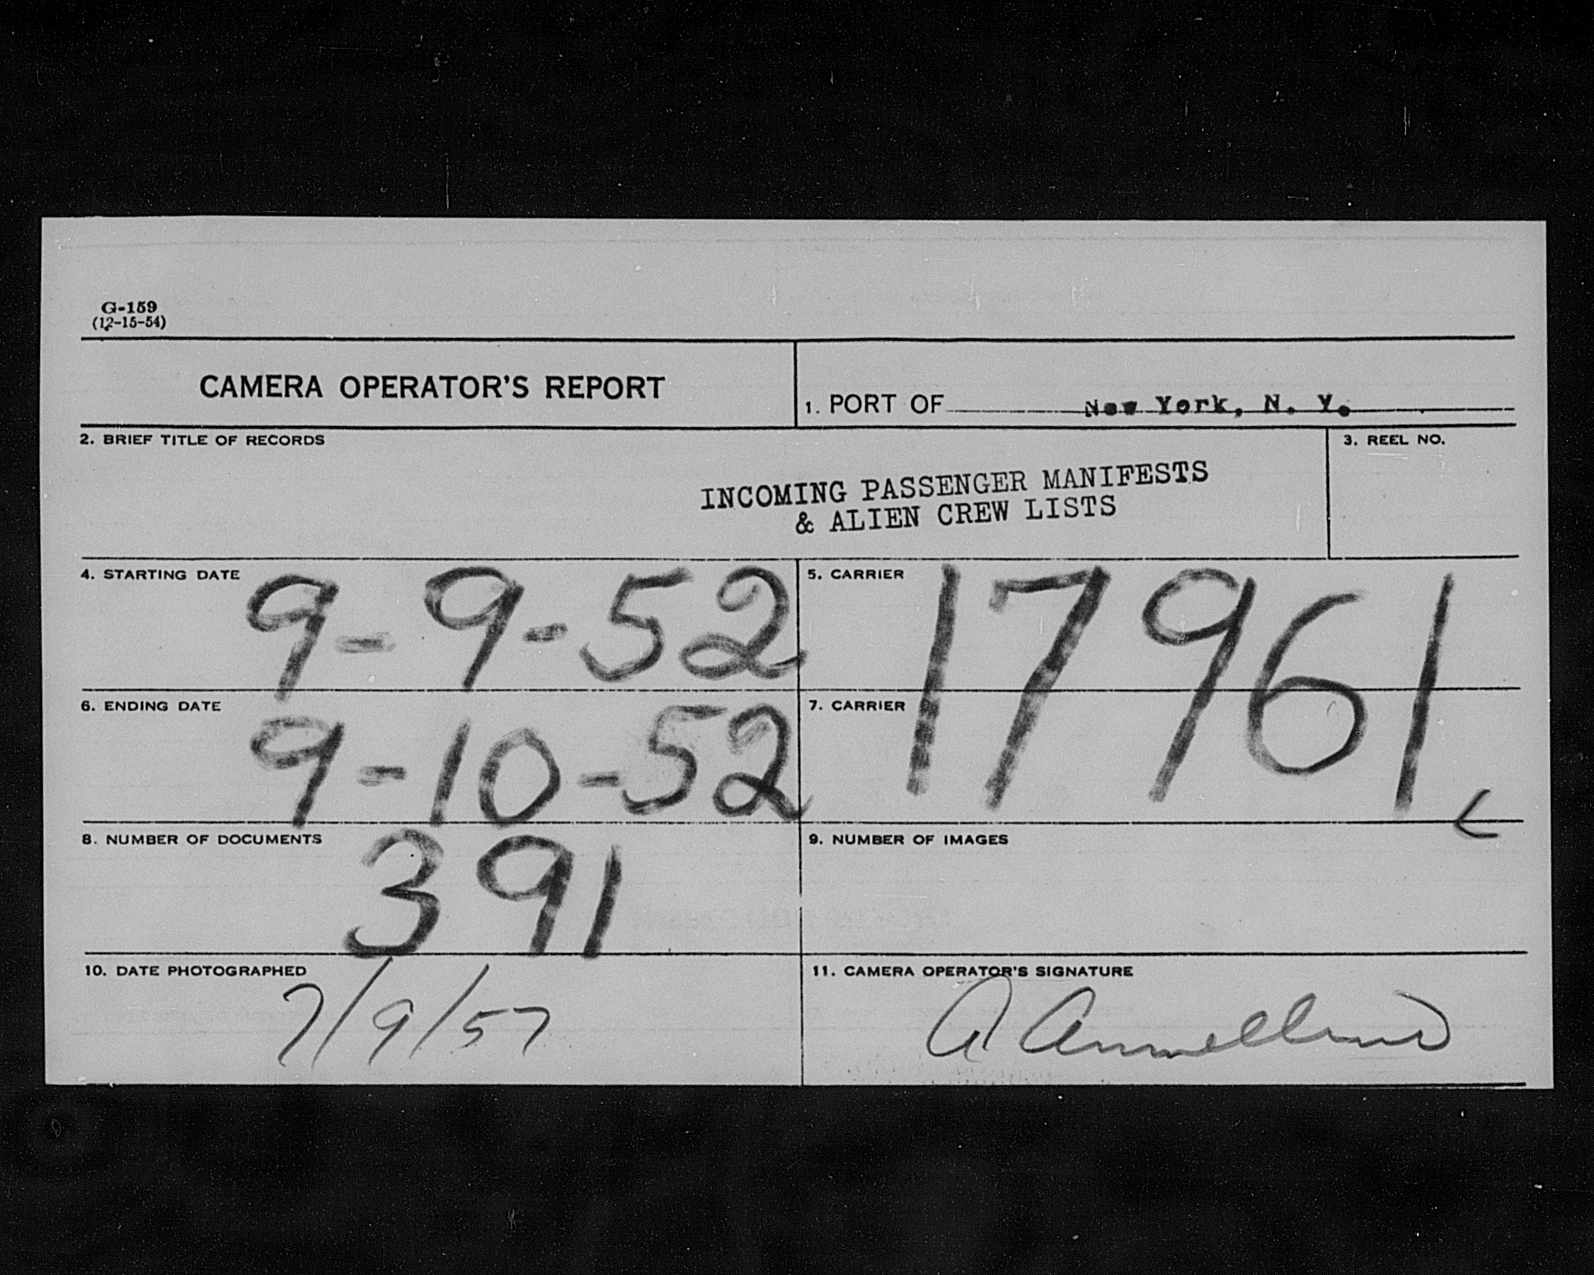 G-159
(12-15-54)
CAMERA OPERATOR'S REPORT
1. PORT OF New York, N. Y.
2. BRIEF TITLE OF RECORDS
3. REEL NO.
INCOMING PASSENGER MANIFESTS
& ALIEN CREW LISTS
4. STARTING DATE 9-9-52
5. CARRIER
17961
6. ENDING DATE 9-10-52
7. CARRIER
8. NUMBER OF DOCUMENTS 391
9. NUMBER OF IMAGES
10. DATE PHOTOGRAPHED
7/9/57
11. CAMERA OPERATOR'S SIGNATURE